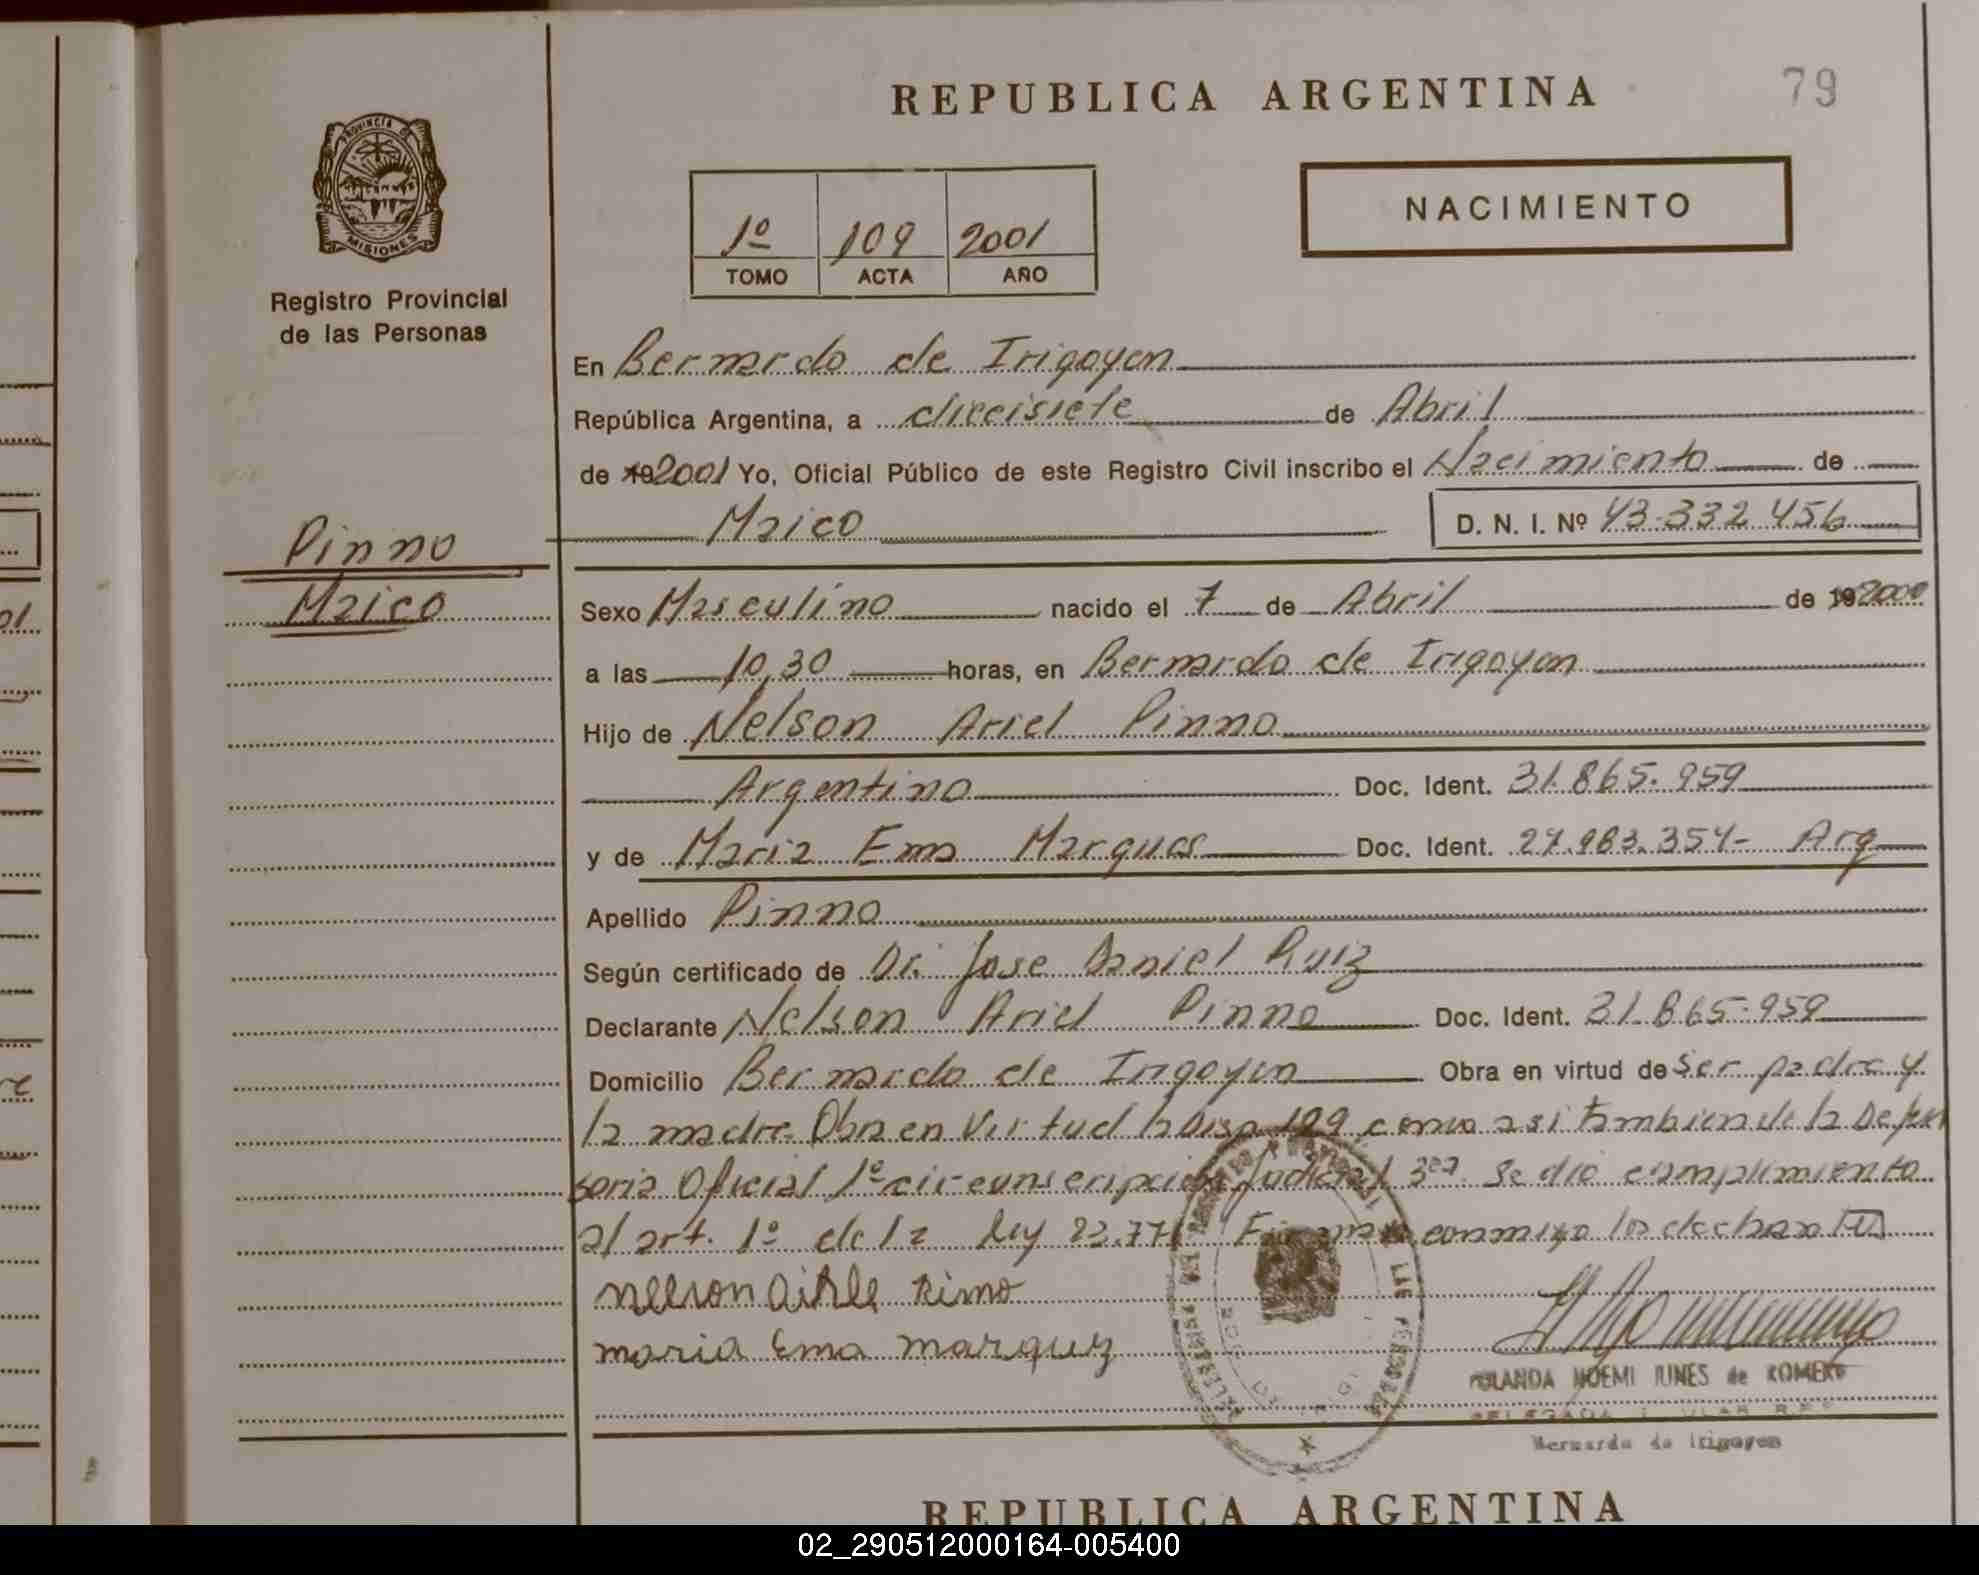 REPUBLICA ARGENTINA
79
PROVINCIA DE
MISIONES
Registro Provincial
de las Personas
1º 109 2001
TOMO ACTA AÑO
NACIMIENTO
En Bernardo de Irigoyen
República Argentina, a diecisiete de Abril
de 192001 Yo, Oficial Público de este Registro Civil inscribo el Nacimiento de
Maico D. N. I. Nº 43.332.456
Pinno
Maico
Sexo Masculino nacido el 7 de Abril de 192000
a las 10,30 horas, en Bernardo de Irigoyen
Hijo de Nelson Ariel Pinno
Argentino Doc. Ident. 31.865.959
y de Maria Ema Marques Doc. Ident. 27.983.354- Arg
Apellido Pinno
Según certificado de Dr. Jose Daniel Ruiz
Declarante Nelson Ariel Pinno Doc. Ident. 31.865.959
Domicilio Bernardo de Irigoyen Obra en virtud de Ser padre y
la madre. Obra en Virtud la Disp 109 como asi tambien de la Defen
soria Oficial 1º circunscripción Judicial 3ra. Se dio cumplimiento
al art. 1º de la ley 23.776 Firman conmigo los declarantes
maria Ema marquez
YOLANDA NOEMI IUNES de ROMERO
Bernardo de Irigoyen
REPUBLICA ARGENTINA
02_290512000164-005400